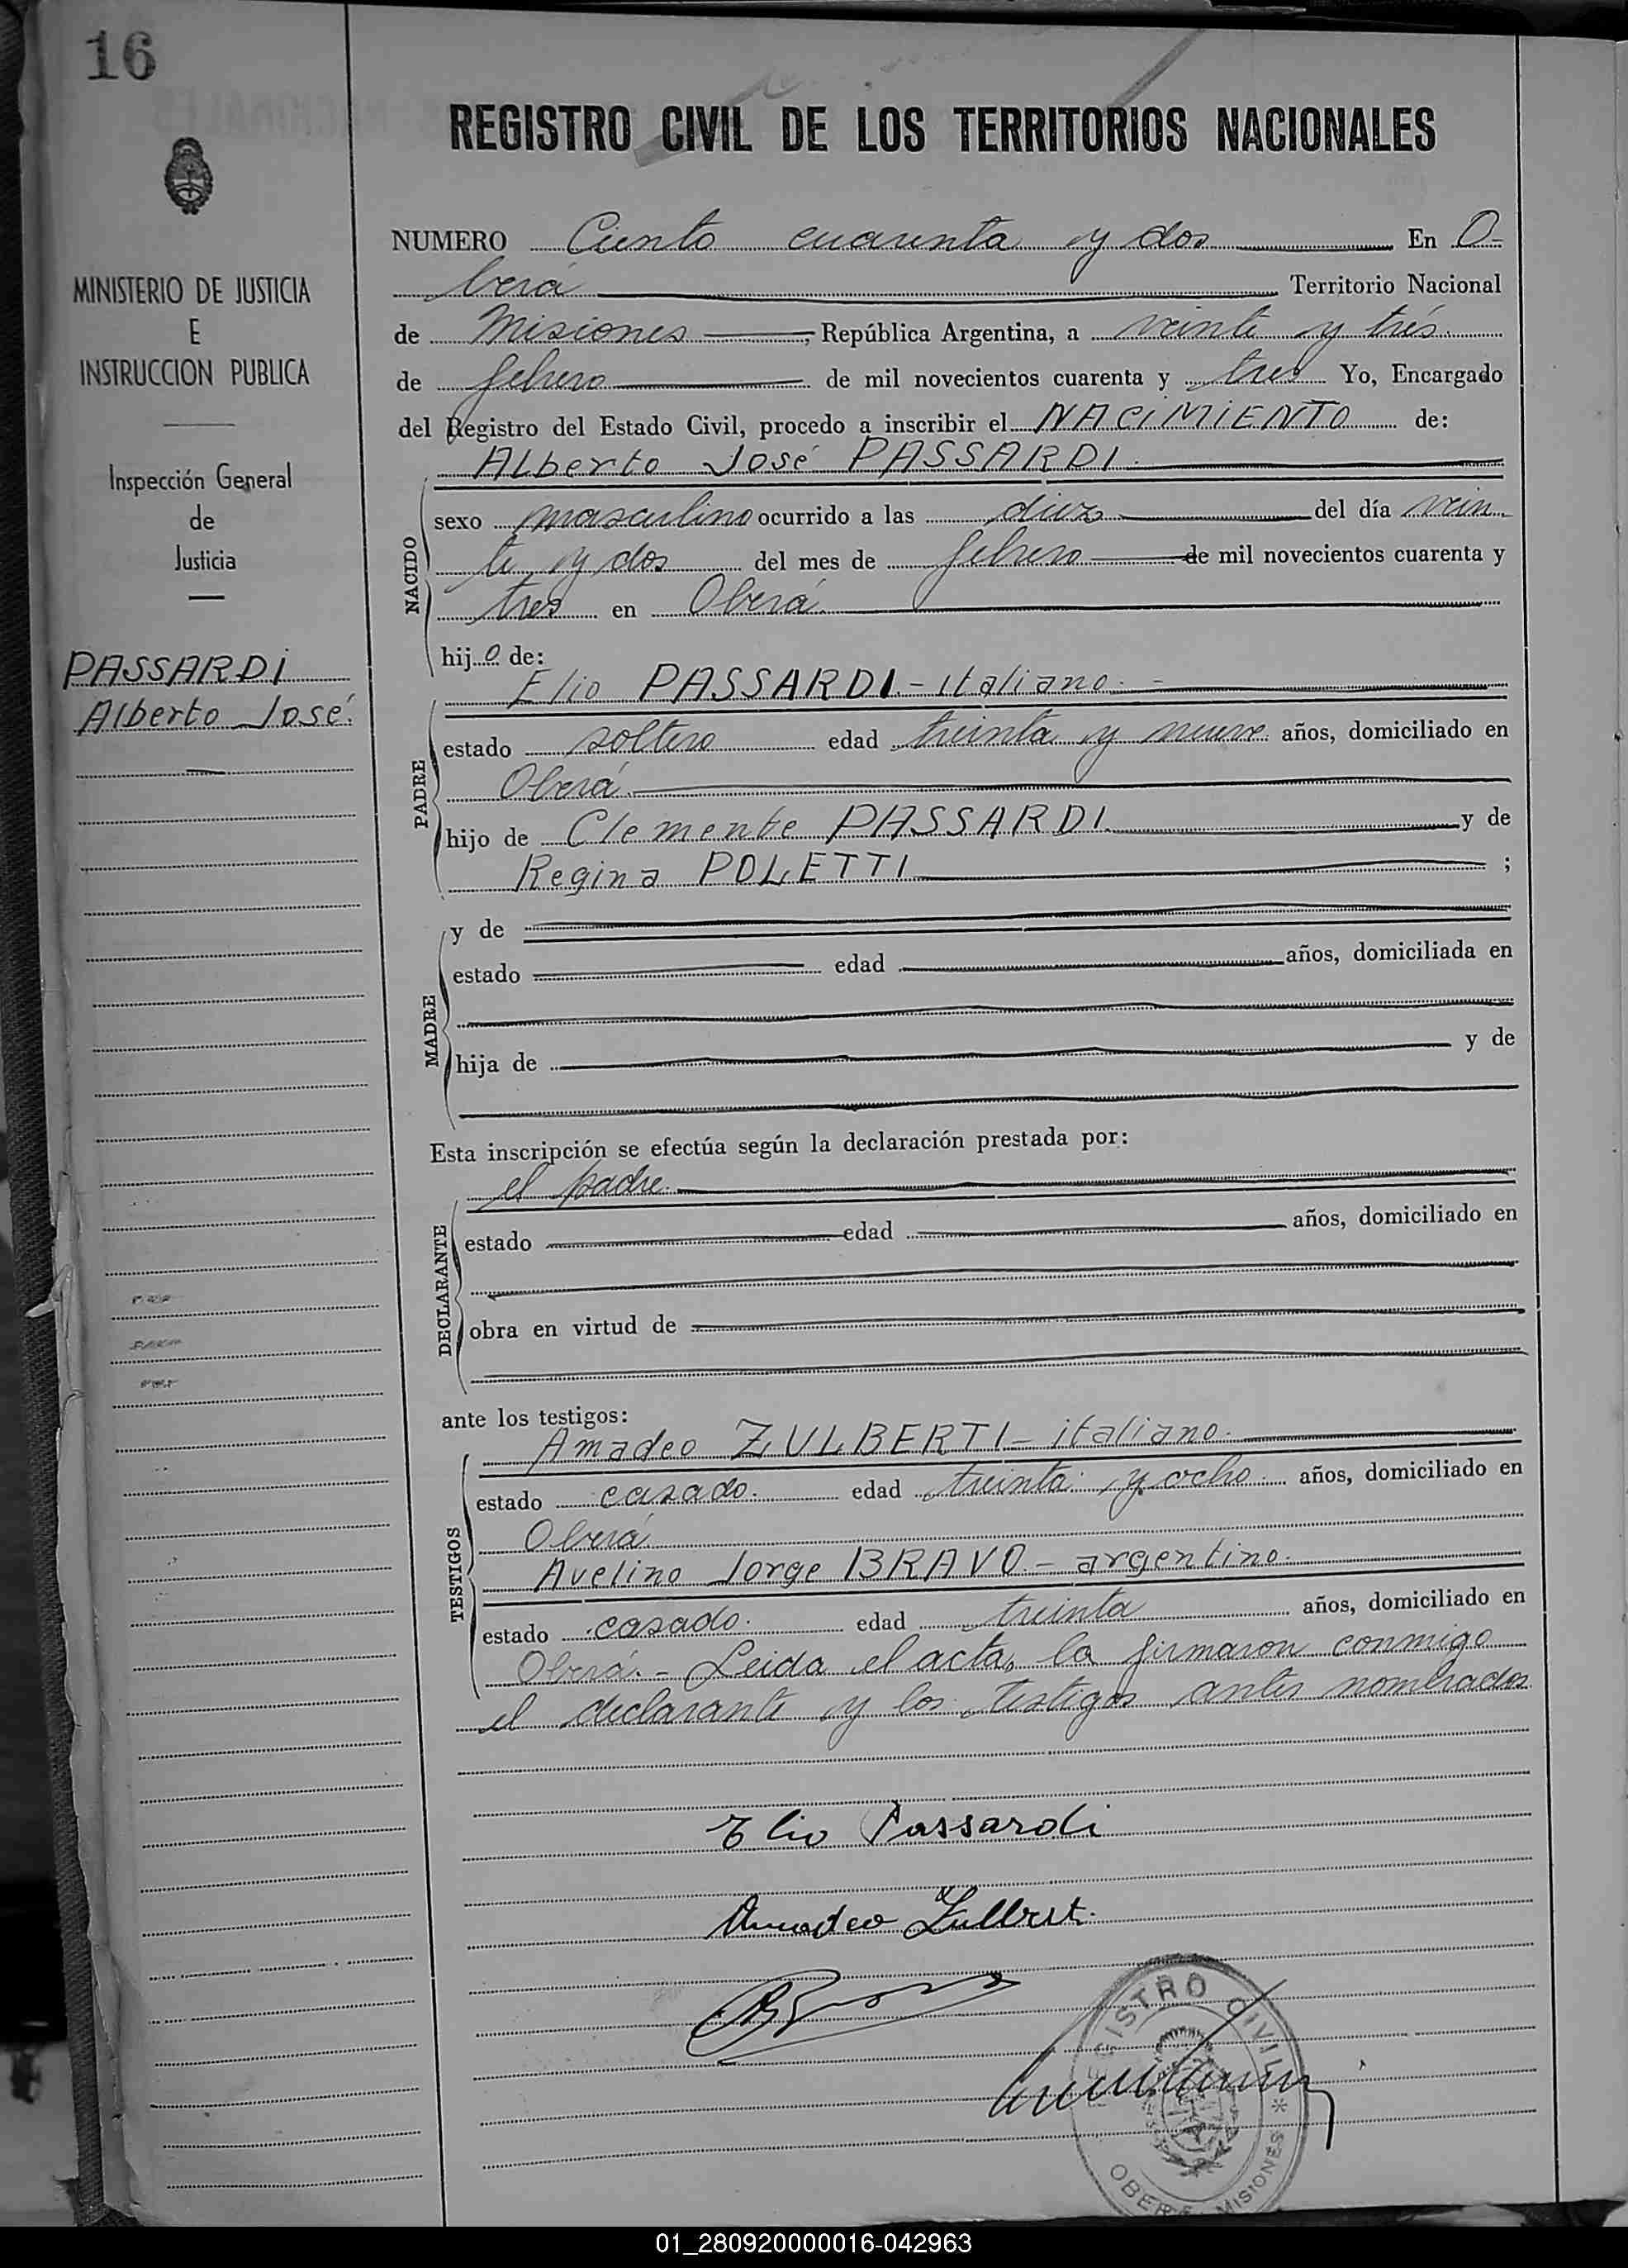 16
REGISTRO CIVIL DE LOS TERRITORIOS NACIONALES
MINISTERIO DE JUSTICIA
E
INSTRUCCION PUBLICA
Inspección General
de
Justicia
PASSARDI
Alberto José.
NUMERO Ciento cuarenta y dos En O-
berá Territorio Nacional
de Misiones, República Argentina, a veinte y trés
de febrero de mil novecientos cuarenta y tres Yo, Encargado
del Registro del Estado Civil, procedo a inscribir el NACIMIENTO de:
Alberto José PASSARDI.
NACIDO
sexo masculino ocurrido a las diez del día vein
te y dos del mes de febrero de mil novecientos cuarenta y
tres en Oberá.
hijo de:
Elio PASSARDI.- italiano.-
PADRE
estado soltero edad treinta y nueve años, domiciliado en
Oberá.
hijo de Clemente PASSARDI y de
Regina POLETTI ;
MADRE
y de
estado edad años, domiciliada en
hija de y de
Esta inscripción se efectúa según la declaración prestada por:
el padre.
DECLARANTE
estado edad años, domiciliado en
obra en virtud de
ante los testigos:
Amadeo ZULBERTI- italiano.
TESTIGOS
estado casado. edad treinta y ocho años, domiciliado en
Oberá.
Avelino Jorge BRAVO.- argentino.
estado casado. edad treinta años, domiciliado en
Oberá.- Leida el acta, la firmaron conmigo
el declarante y los testigos antes nombrados
Elio Passardi
Amadeo Zulberti
REGISTRO CIVIL * OBERA MISIONES
01_280920000016-042963